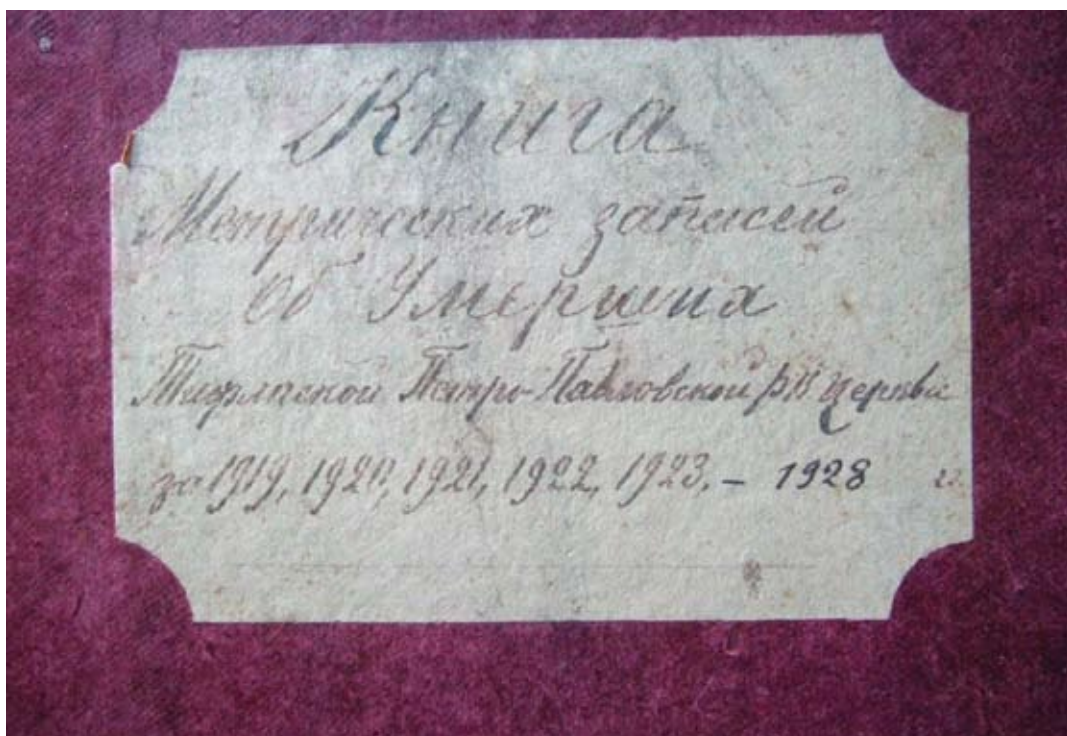 Книга
Метрических записей
об Умерших
Тифлисской Петро-Павловской Р К Церкви
за 1919, 1920, 1921, 1922, 1923, – 1928 г.